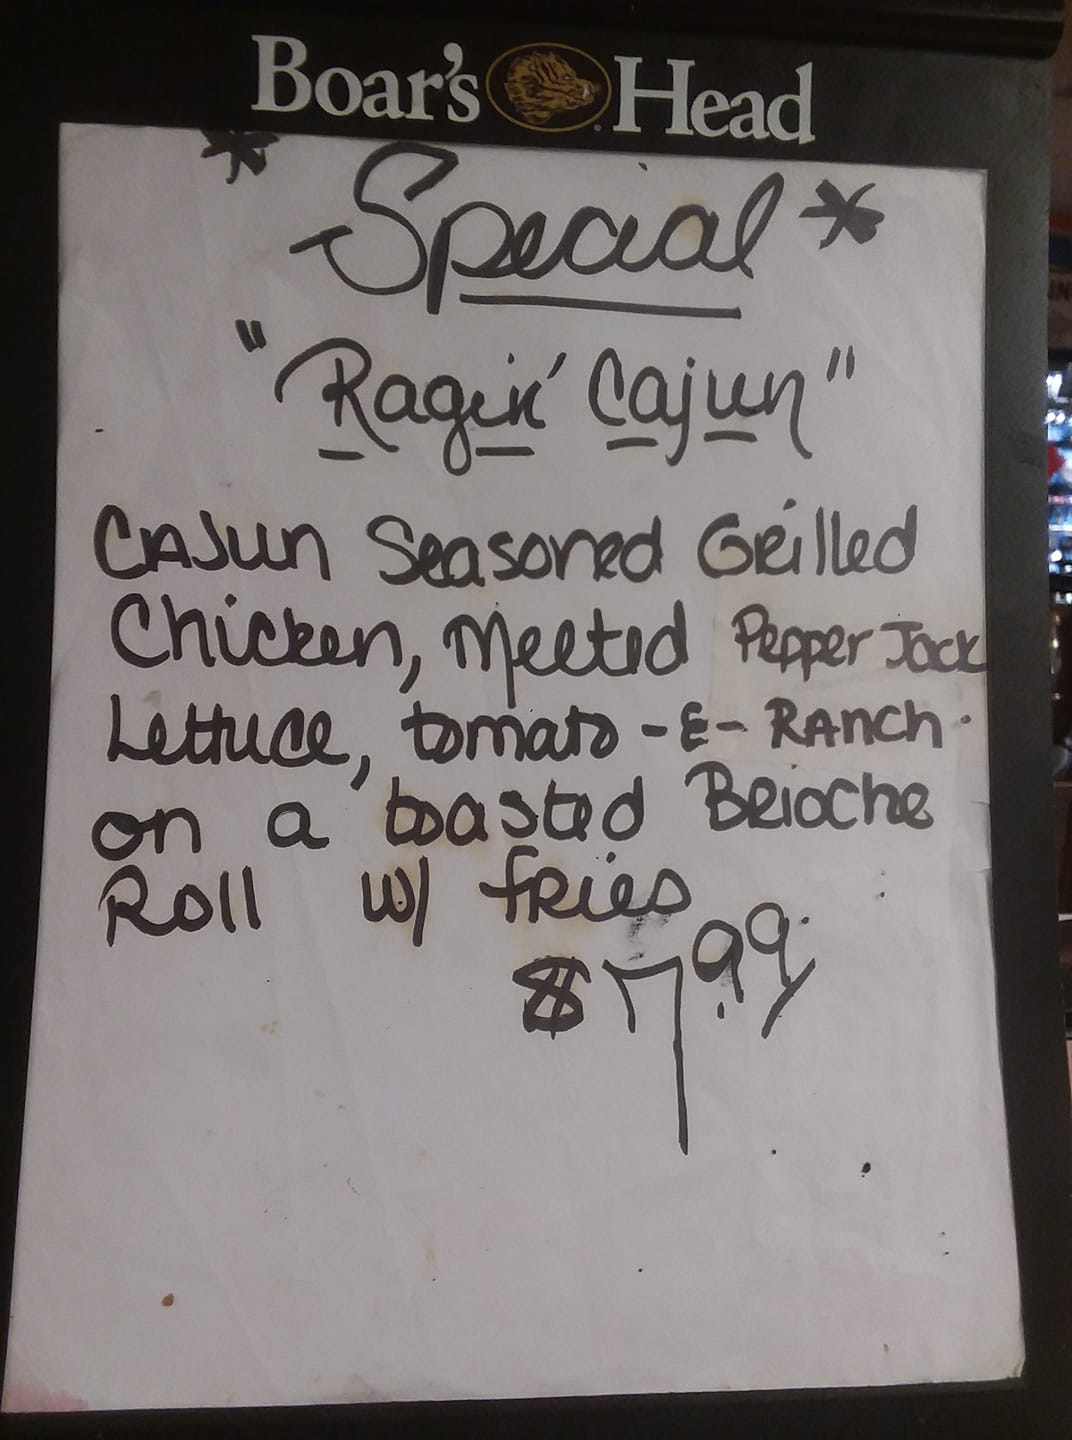 Boar's Head
* Special *
"Ragin' Cajun"
CAJUN Seasoned Grilled
Chicken, Melted Pepper Jack
Lettuce, tomato -&- RANCH
on a toasted Brioche
Roll w/ fries
$7.99